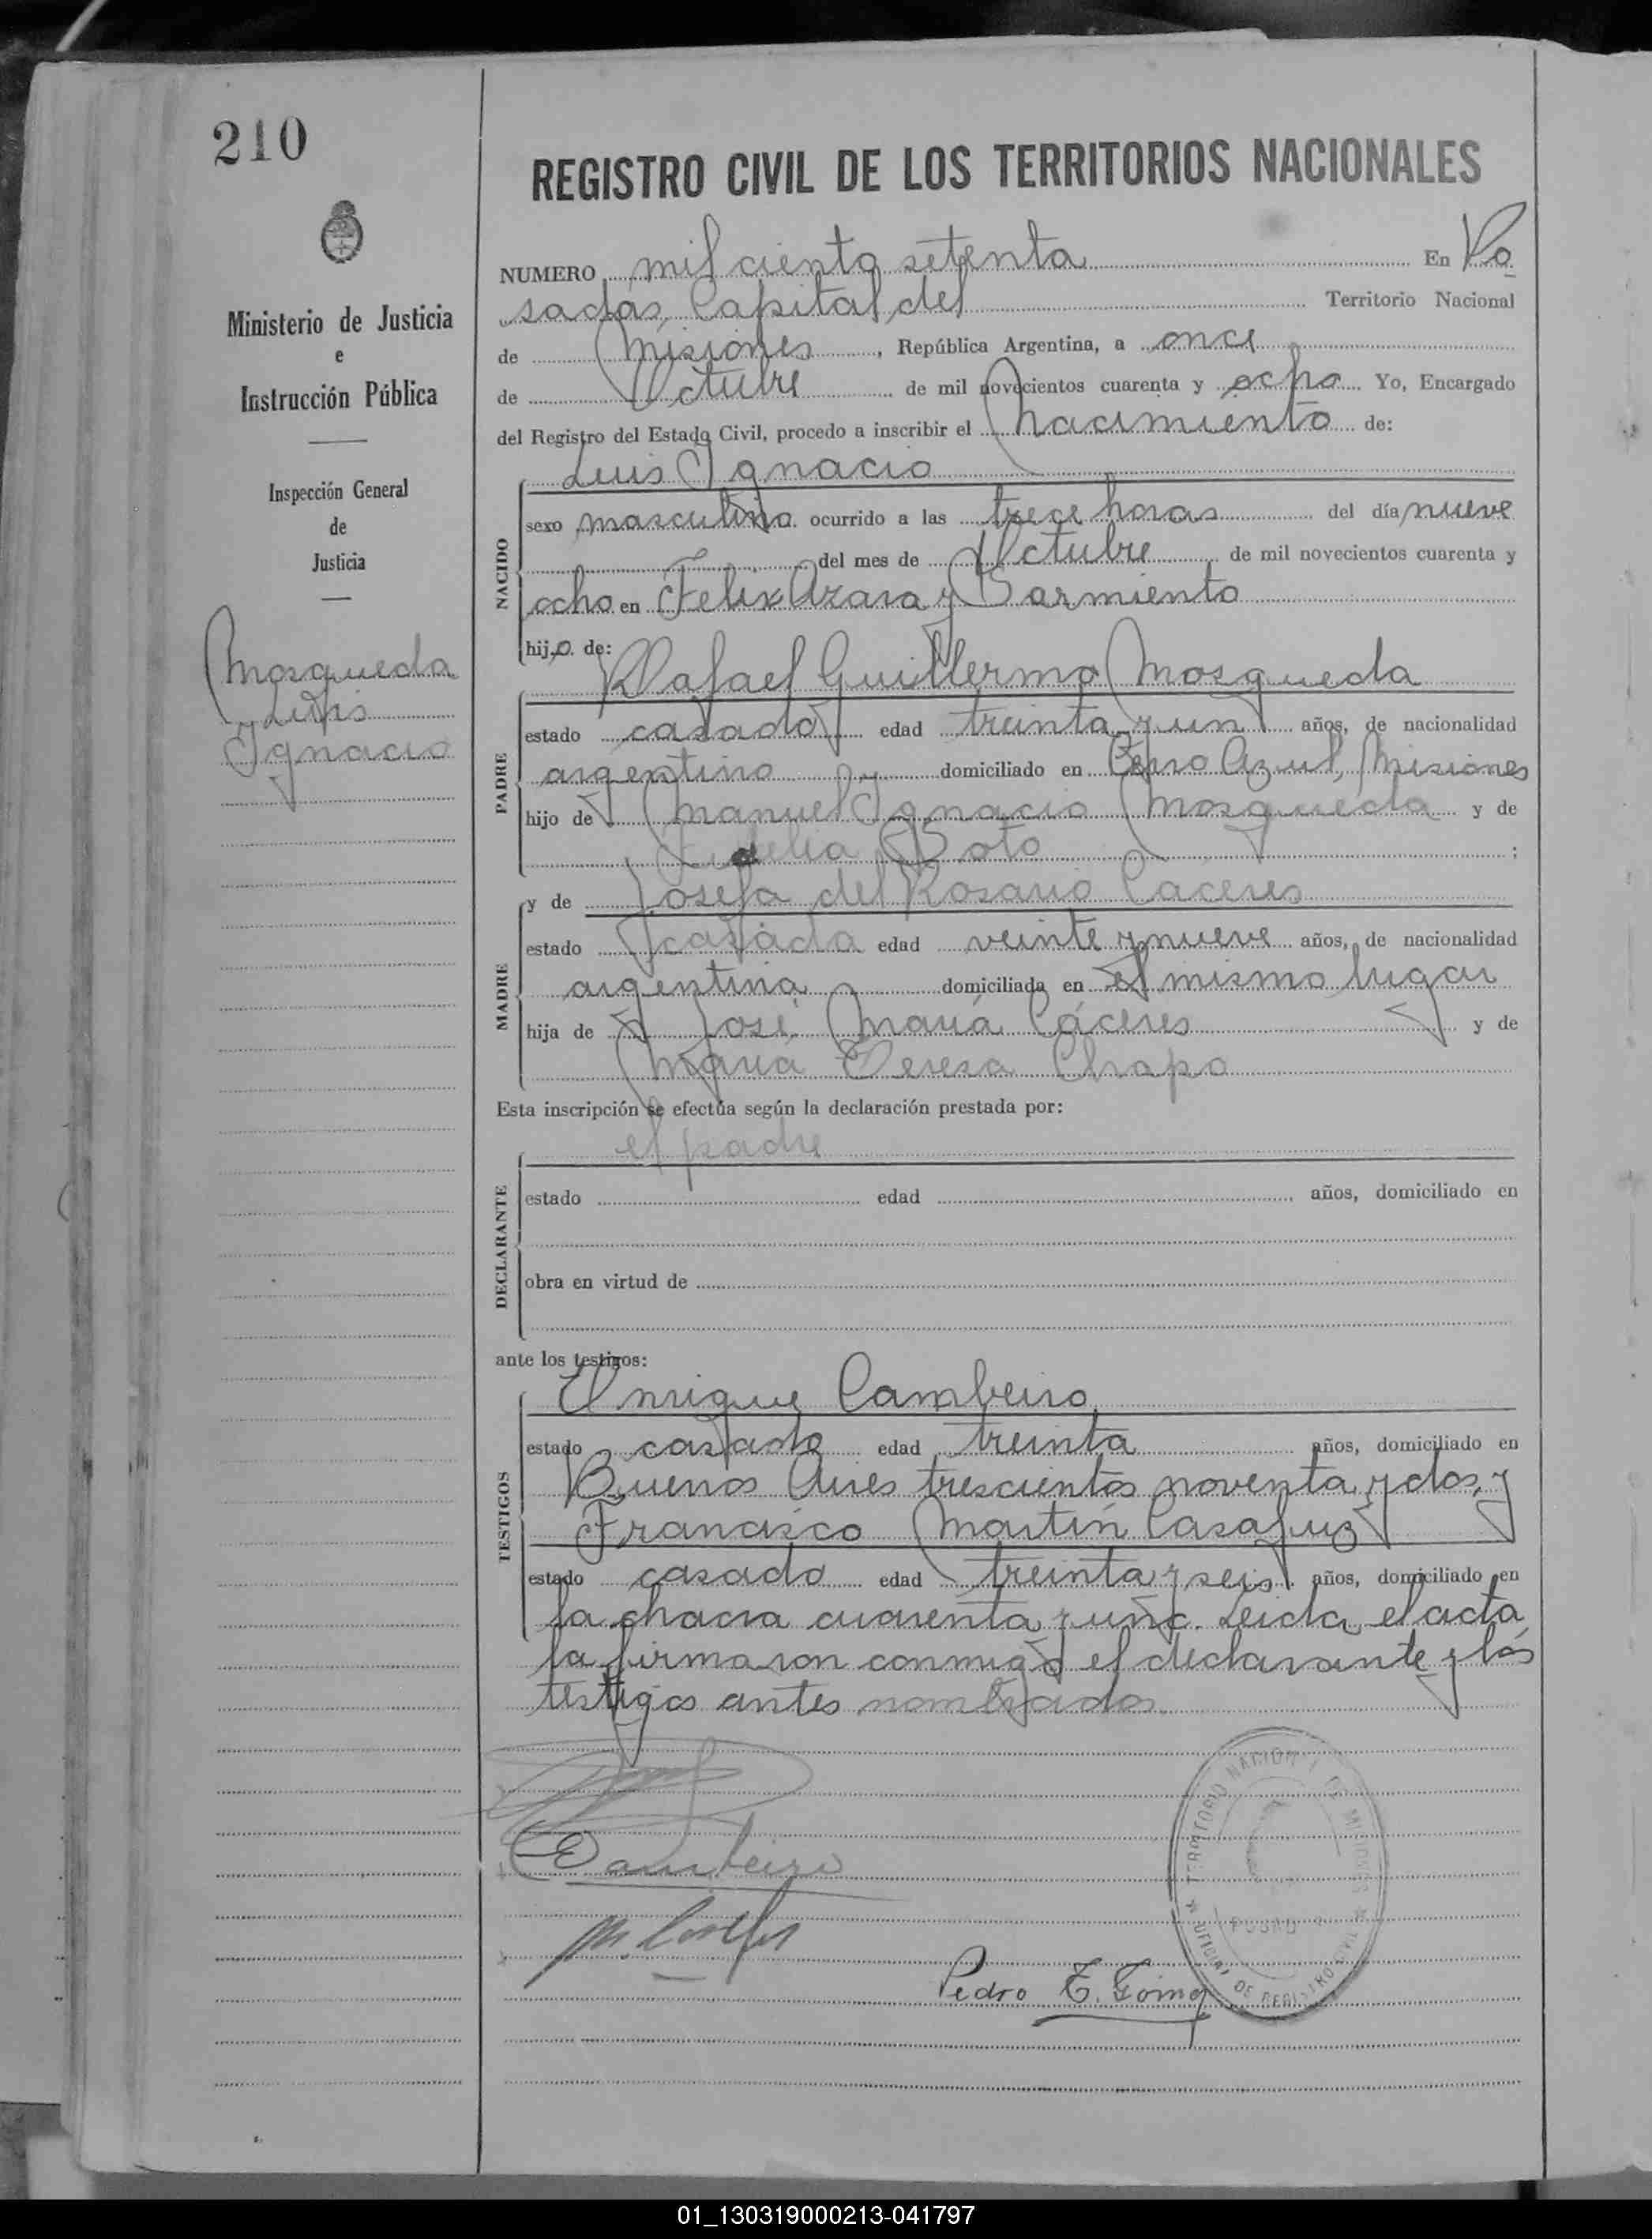 210
REGISTRO CIVIL DE LOS TERRITORIOS NACIONALES
Ministerio de Justicia
e
Instrucción Pública
Inspección General
de
Justicia
Mosqueda
Luis
Ignacio
NUMERO mil ciento setenta En Po
sadas, Capital del Territorio Nacional
de Misiones, República Argentina, a once
de Octubre de mil novecientos cuarenta y ocho Yo, Encargado
del Registro del Estado Civil, procedo a inscribir el nacimiento de:
Luis Ignacio
NACIDO
sexo masculino ocurrido a las trece horas del día nueve
del mes de Octubre de mil novecientos cuarenta y
ocho en Felix Azara y Sarmiento
hijo de:
Rafael Guillermo Mosqueda
PADRE
estado casado edad treinta y un años, de nacionalidad
argentino domiciliado en Cerro Azul, Misiones
hijo de Manuel Ignacio Mosqueda y de
Soto ;
y de Josefa del Rosario Caceres
MADRE
estado casada edad veinte y nueve años, de nacionalidad
argentina domiciliada en el mismo lugar
hija de José María Cáceres y de
María Teresa Chapo
Esta inscripción se efectúa según la declaración prestada por:
el padre
DECLARANTE
estado edad años, domiciliado en
obra en virtud de
ante los testigos:
TESTIGOS
Enrique Cambeiro
estado casado edad treinta años, domiciliado en
Buenos Aires trescientos noventa y dos, y
Francisco Martín Casafuz
estado casado edad treinta y seis años, domiciliado en
la chacra cuarenta y una. Leida el acta
la firmaron conmigo el declarante y los
testigos antes nombrados.
Cambeiro
Pedro E. Gómez
TERRITORIO NACIONAL DE MISIONES
POSADAS
OFICINA DE REGISTRO CIVIL
01_130319000213-041797